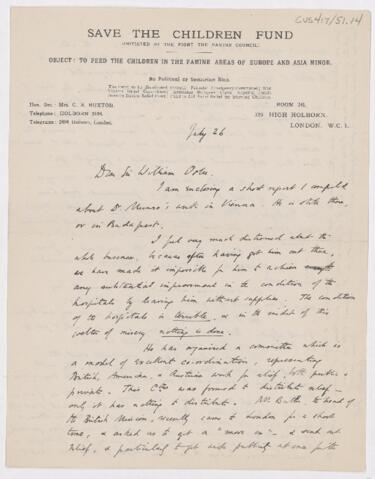 CUS417/51.14
SAVE THE CHILDREN FUND
(INITIATED BY THE FIGHT THE FAMINE COUNCIL)
OBJECT: TO FEED THE CHILDREN IN THE FAMINE AREAS OF EUROPE AND ASIA MINOR.
No Political or Sectarian Bias.
Hon. Sec.: Mrs. C. R. BUXTON.
Telephone: HOLBORN
Telegrams: Holborn, London.
ROOM
329 HIGH HOLBORN,
LONDON. W.C. 1.
July 26
Dear Sir William Osler.
I am enclosing a short report I compiled
about Dr Munro's work in Vienna. He is still there,
or in Budapest.
I feel very much distressed about the
whole business, because after having got him out there,
we have made it impossible for him to achieve
any substantial improvement in the condition of the
hospitals by leaving him without supplies. The condition
of the hospitals is terrible, & in the midst of this
welter of misery nothing is done.
He has organised a committee which is
a model of excellent co-ordination, representing
British, American, & Austrian work for relief, both public &
private. This Cttee was formed to distribute relief –
only it has nothing to distribute. Mr Butler the head of
the British Mission, recently came to London for a short
time, & asked us to get a "move on" – & send out
relief, & particularly to get wide publicity at once for the